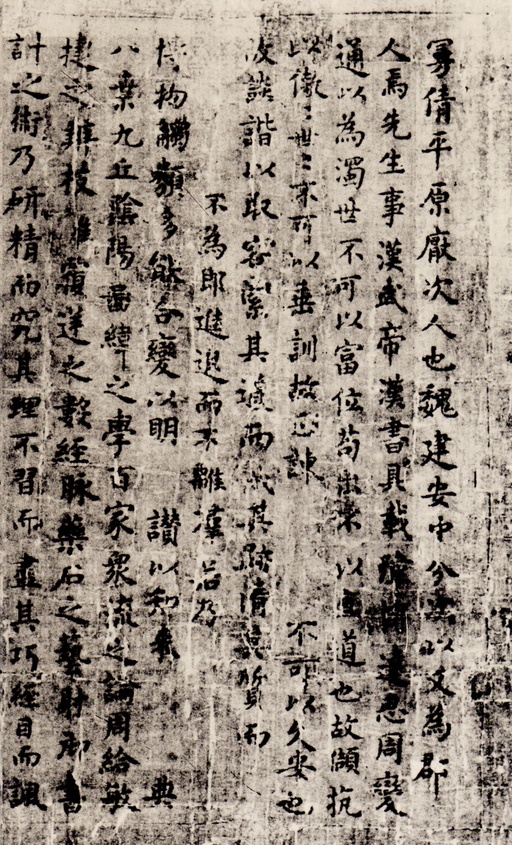 曼倩平原厭次人也魏建安中分以又為郡
人焉先生事漢武帝漢書具載達思周變
通以為濁世不可以富位苟出以直道也故頡抗
以傲〻世〻不可以垂訓故正諫 不可以久安也
故詼諧以取容絜其道而穢其跡清其質而
不為耶進退而不離羣若乃
博物觸類多能合變以明 讃以知來 典
八索九丘陰陽圖緯之學百家衆流之論周給敏
捷之辨枝離覆逆之數經脉藥石之藝射御書
計之術乃研精而究其理不習而盡其巧經目而諷